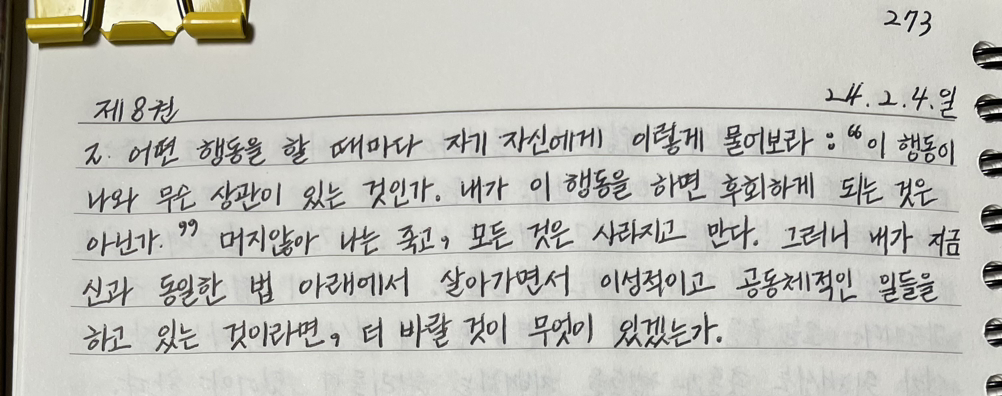 273
제8권 24.2.4.일
2. 어떤 행동을 할 때마다 자기 자신에게 이렇게 물어보라 : “이 행동이
나와 무슨 상관이 있는 것인가. 내가 이 행동을 하면 후회하게 되는 것은
아닌가.” 머지않아 나는 죽고, 모든 것은 사라지고 만다. 그러니 내가 지금
신과 동일한 법 아래에서 살아가면서 이성적이고 공동체적인 일들을
하고 있는 것이라면, 더 바랄 것이 무엇이 있겠는가.